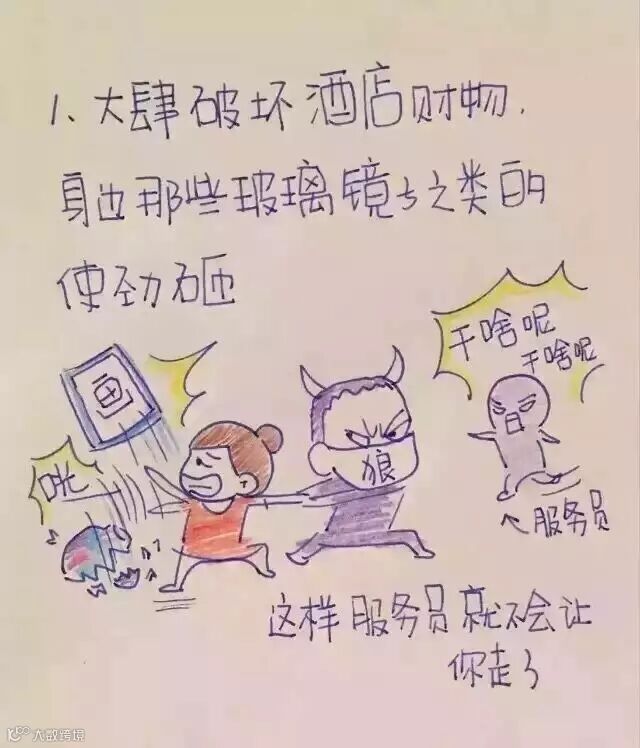 1、大肆破坏酒店财物,
身边那些玻璃镜子之类的
使劲砸
干啥呢
干啥呢
画
咣
狼
服务员
这样服务员就不会让
你走了
大数跨境